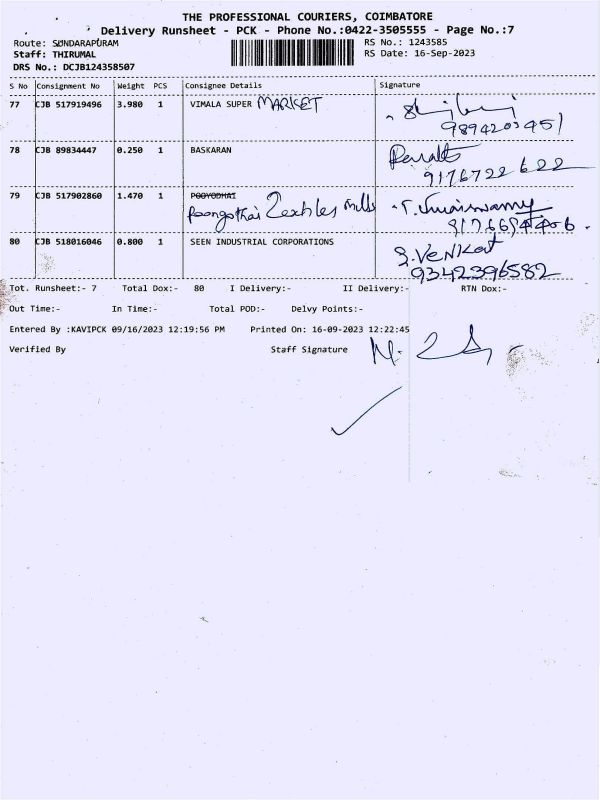 THE PROFESSIONAL COURIERS, COIMBATORE
Delivery Runsheet - PCK - Phone No.:0422-3505555 - Page No.:7
Route: SUNDARAPURAM
RS No.: 1243585
Staff: THIRUMAL
RS Date: 16-Sep-2023
DRS No.: DCJB124358507
S No Consignment No Weight PCS Consignee Details Signature
77 CJB 517919496 3.980 1 VIMALA SUPER MARKET
9894203451
78 CJB 89834447 0.250 1 BASKARAN
9176722622
79 CJB 517902860 1.470 1 POOYODHAI
Poongothai Textiles Mills
80 CJB 518016046 0.800 1 SEEN INDUSTRIAL CORPORATIONS
S. Venkat
9342396582
Tot. Runsheet:- 7 Total Dox:- 80 I Delivery:- II Delivery:- RTN Dox:-
Out Time:- In Time:- Total POD:- Delvy Points:-
Entered By :KAVIPCK 09/16/2023 12:19:56 PM Printed On: 16-09-2023 12:22:45
Verified By Staff Signature